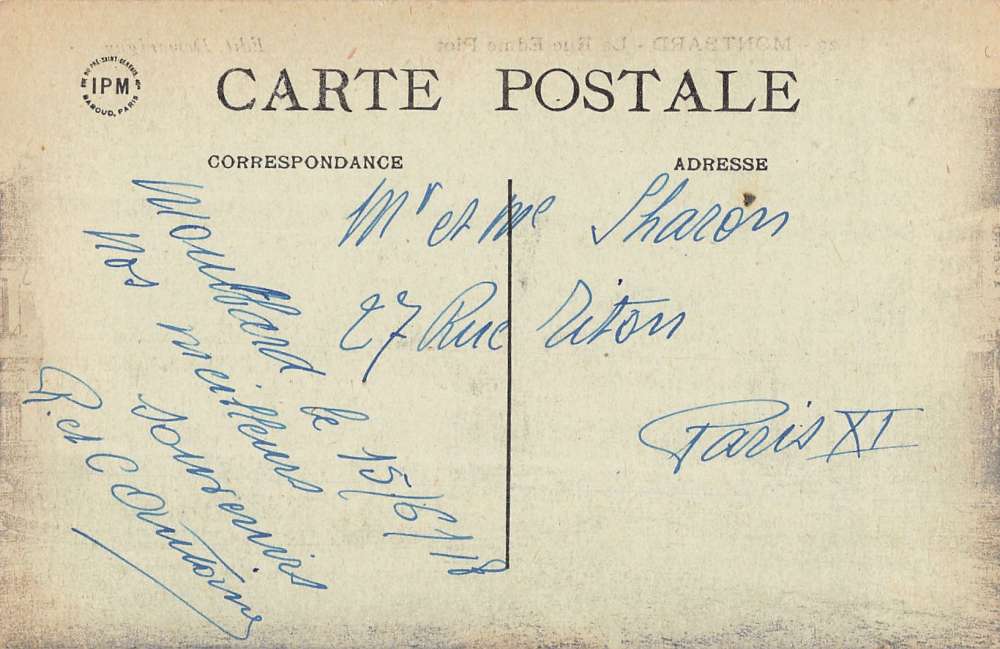 22 - MONTBARD - La Rue Edme Piot
IPM
CARTE POSTALE
CORRESPONDANCE
ADRESSE
Montbard le 15/6/18
Nos meilleurs
souvenirs
R. et C Antoine
Mr et Me Sharon
27 Rue Titon
Paris XI